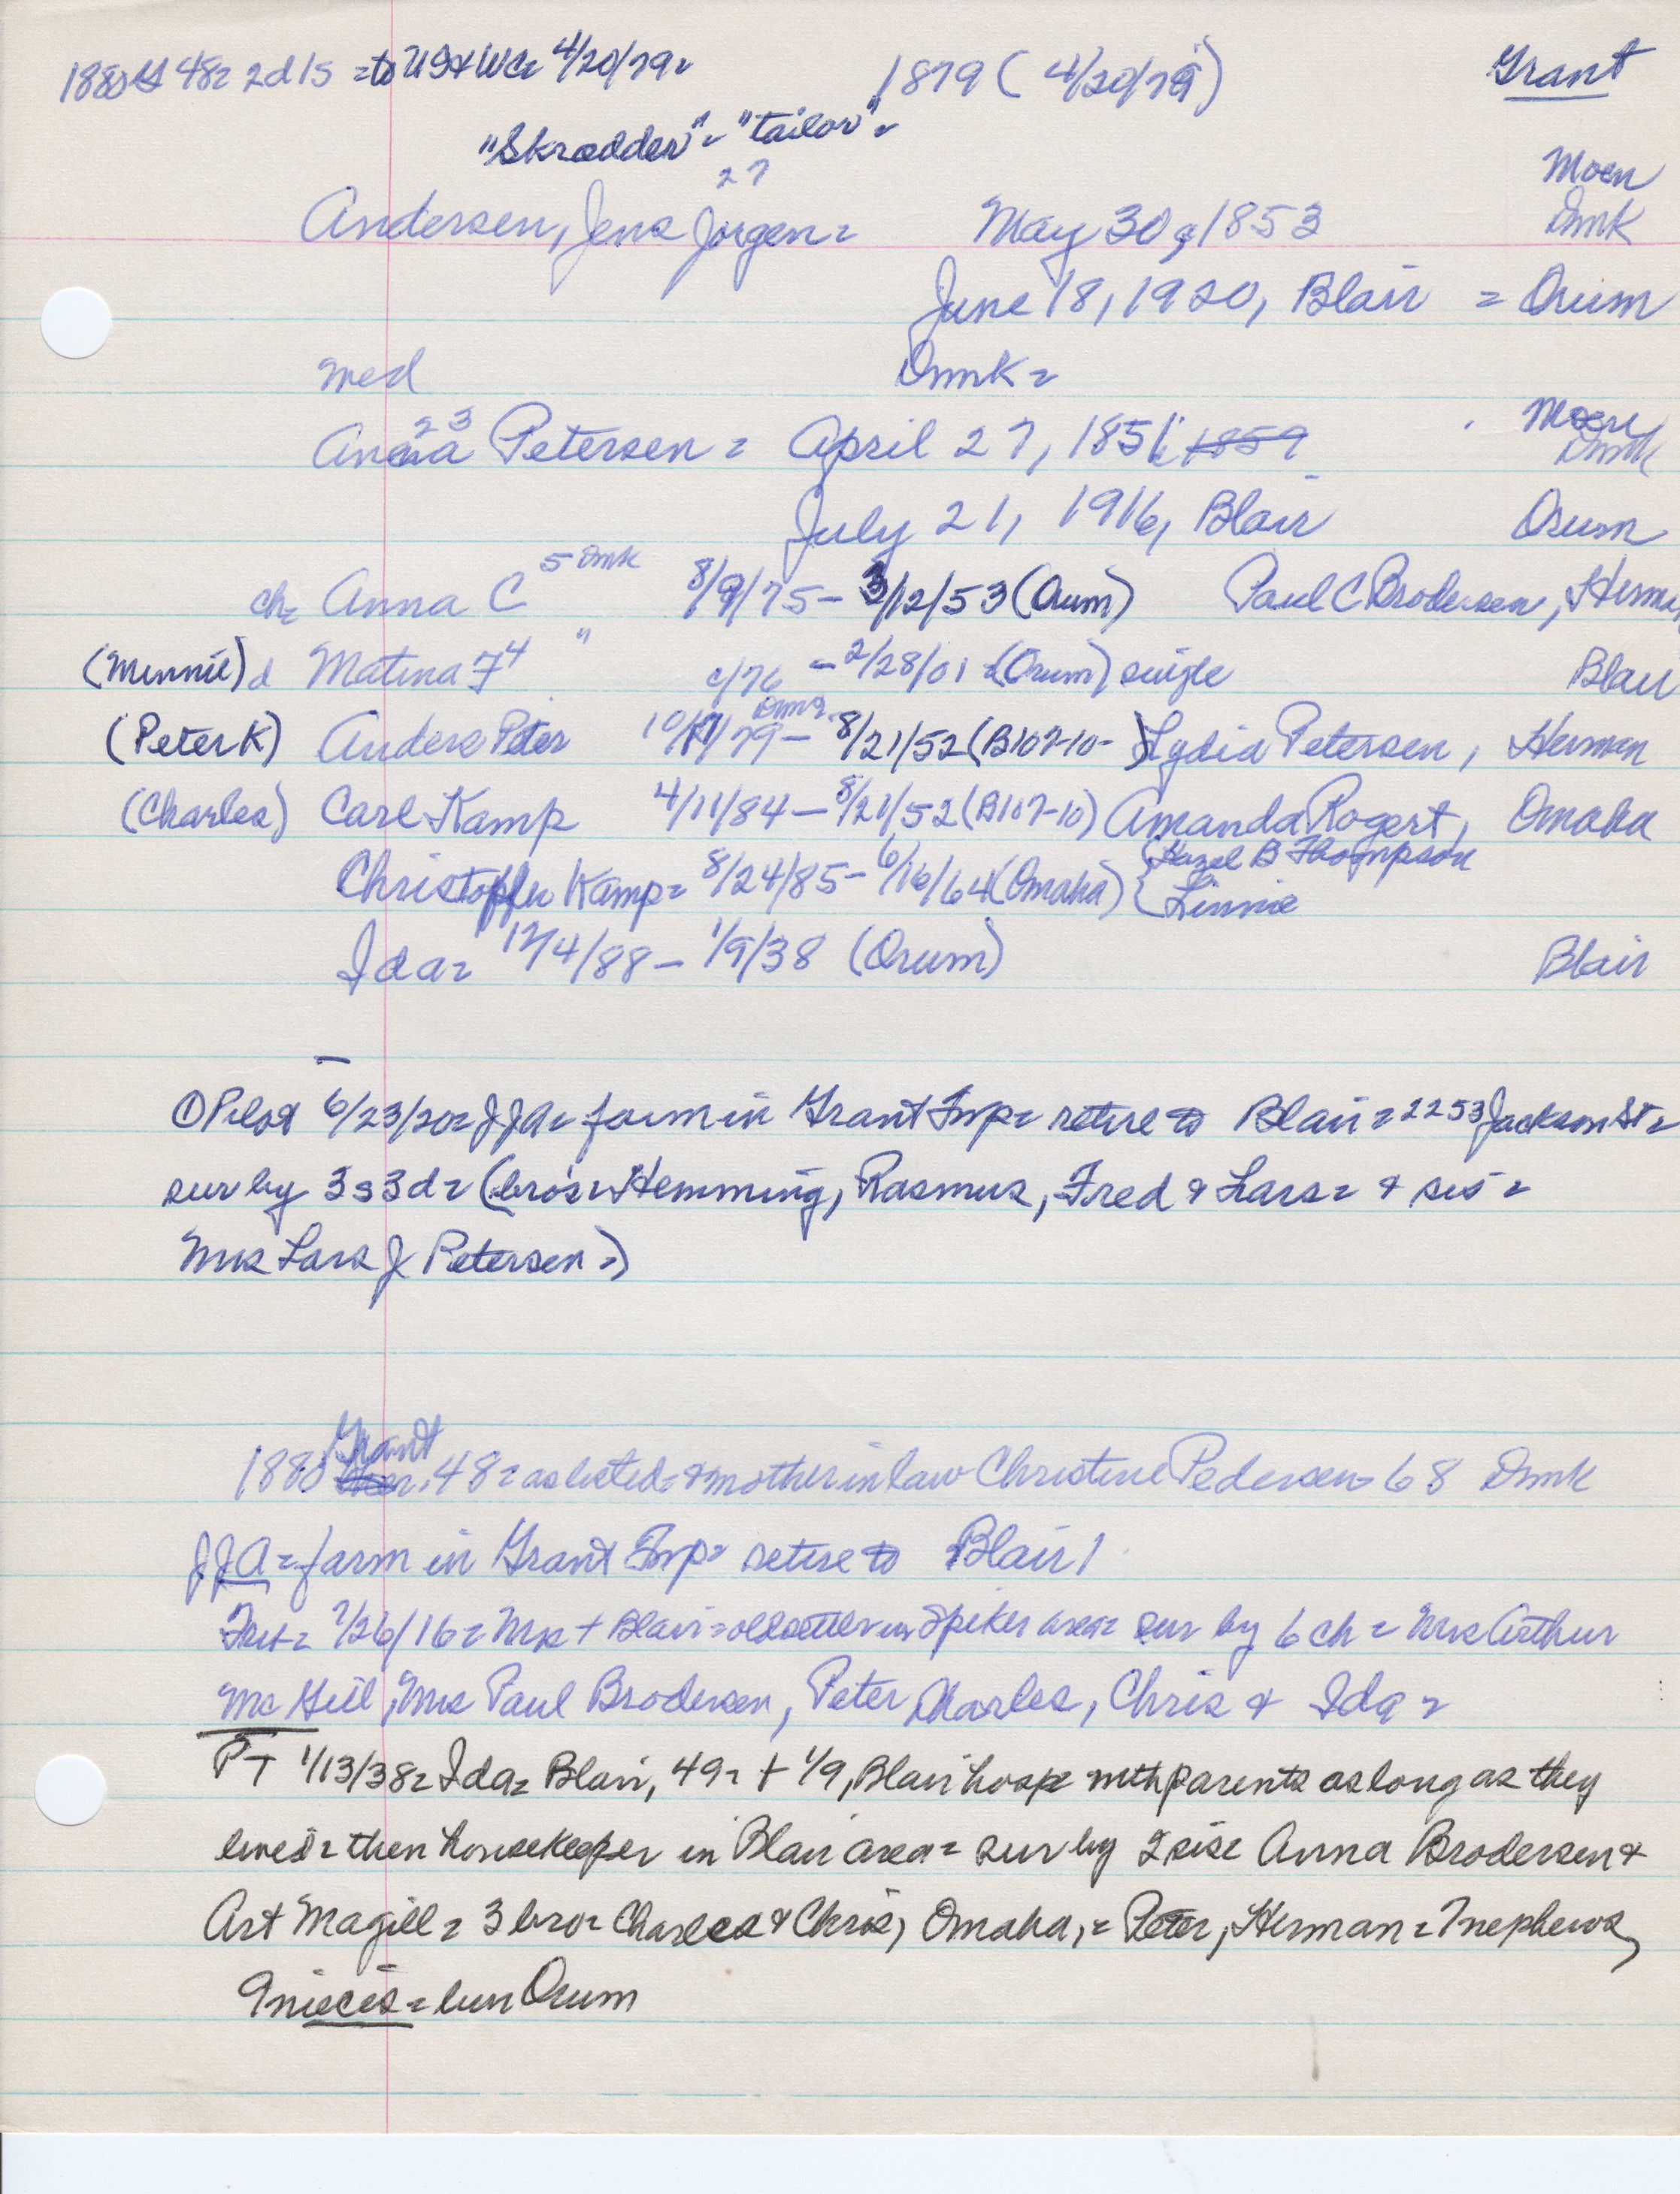 1880 G 48= 2d 1s = to US & WC= 4/20/79= 1879 (4/20/79) Grant
"Skrædder" = "tailor" =
27 Moen
Andersen, Jens Jorgen = May 30, 1853 Dmk
June 18, 1920, Blair = Orum
med Dmk =
23 Moen
Anna Petersen = April 27, 1851; 1859 Dmk
July 21, 1916, Blair Orum
ch= Anna C 5 Dmk 8/9/75 - 3/12/53 (Orum) Paul C Brodersen, Herman
(Minnie) d Matina F 4 " c/76 - 2/28/01 = (Orum) single Blair
(Peter K) Anders Peter 10/11/79 - 8/21/52 (B107-10-) Lydia Petersen, Herman
(Charles) Carl Kamp 4/11/84 - 8/21/52 (B107-10) Amanda Rogert, Omaha
Christoffer Kamp = 8/24/85 - 6/16/64 (Omaha) { Hazel B Thompson
{ Linnie
Ida = 12/4/88 - 1/9/38 (Orum) Blair
① Pilot 6/23/20 = JJA = farm in Grant Twp = retire to Blair = 2253 Jackson St =
sur by 3s 3d = (bro's = Hemming, Rasmus, Fred & Lars = & sis =
Mrs Lars J Petersen =)
Grant
1880 48 = as listed = & mother in law Christine Pedersen = 68 Dmk
JJA = farm in Grant Twp = retire to Blair /
7/26/16 = Mrs + Blair = old settler in Spiker area = sur by 6 ch = Mrs Arthur
McGill, Mrs Paul Brodersen, Peter Charles, Chris & Ida =
PT 1/13/38 = Ida = Blair, 49 = + 1/9, Blair hosp = with parents as long as they
lived = then housekeeper in Blair area = sur by 2 sis = Anna Brodersen &
Art Magill = 3 bro = Charles & Chris, Omaha, = Peter, Herman = 7 nephews,
9 nieces = bur Orum